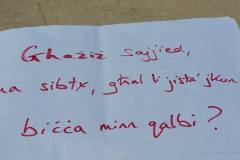 Għażiż sajjied,
na sibtx, għal li jista' jkun
biċċa minn qalbi?